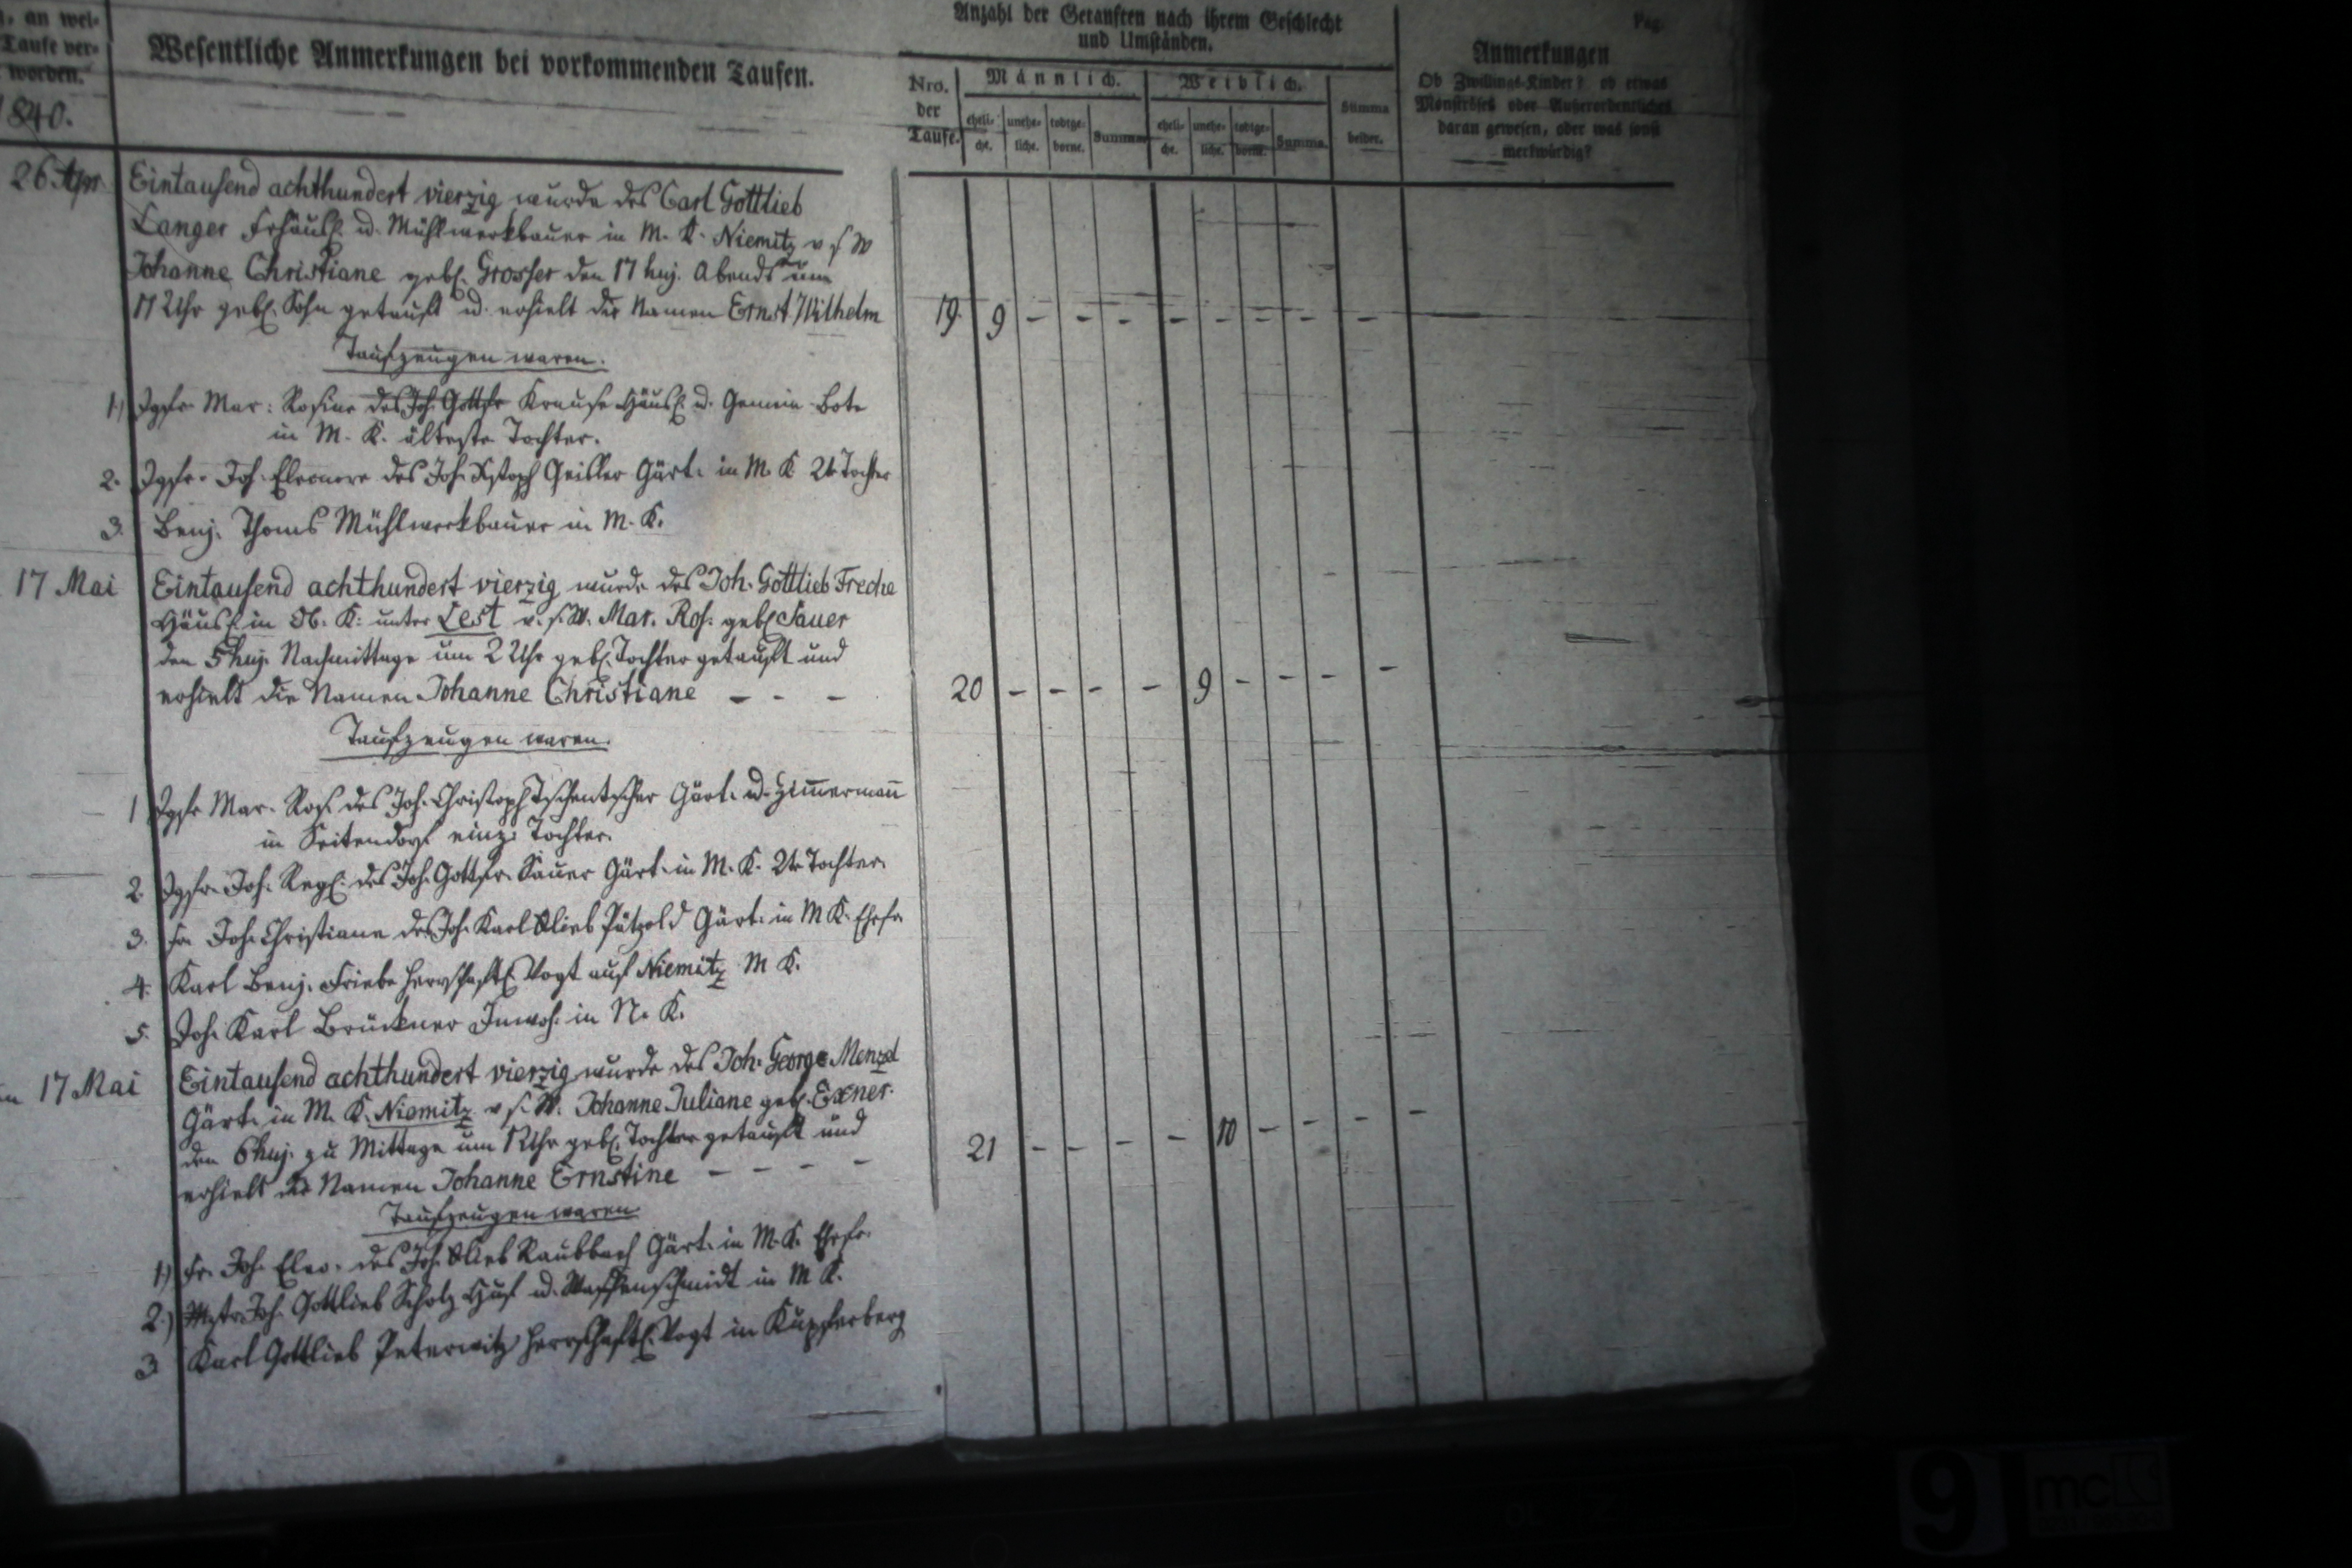 , an wel-
Taufe ver-
worden.
1840.
Wesentliche Anmerkungen bei vorkommenden Taufen.
Anzahl der Getauften nach ihrem Geschlecht
und Umständen.
Nro.
der
Taufe.
Männlich.
Weiblich.
eheli-
che.
unehe-
liche.
todtge-
borne.
Summa.
eheli-
che.
unehe-
liche.
todtge-
borne.
Summa.
Summa
beider.
Pag.
Anmerkungen
Ob Zwillings-Kinder? ob etwas
Monströses oder Außerordentliches
daran gewesen, oder was sonst
merkwürdig?
26 Apr. Eintausend achthundert vierzig wurde des Carl Gottlieb
Langer Frhäusl. u. Mühlwerkbauer in M. K. Niemitz v s W
Johanne Christiane gebl. Grosser den 17 huj. Abends um
11 Uhr gebl. Sohn getauft u. erhielt die Namen Ernst Wilhelm
19. 9 - - - - - - - -
Taufzeugen waren.
1.) Jgfr. Mar: Rosine des Joh. Gottfr Krause Häusl. u. Gemein-Bote
in M. K. älteste Tochter.
2. Jgfr. Joh. Eleonore des Joh. Xstoph Geisler Gärt. in M. K 2te Tochter
3. Benj. Thoms Mühlwerkbauer in M. K.
17 Mai Eintausend achthundert vierzig wurde des Joh. Gottlieb Freche
Häusl. in Ob. K. unter Lest v. s. W. Mar. Ros. gebl Sauer
den 5 huj. Nachmittage um 2 Uhr gebl. Tochter getauft und
erhielt die Namen Johanne Christiane - - -
20 - - - - 9 - - - -
Taufzeugen waren.
1 Jgfr Mar. Ros. des Joh. Christoph Tschentscher Gärt. u. Zimmermann
in Seitendorf einz. Tochter.
2. Jgfr. Joh. Regl. des Joh. Gottfr. Sauer Gärt. in M. K. 2te Tochter.
3. Fr. Joh. Christiane des Joh. Karl Glieb Pätzold Gärt. in M K. Ehefr.
4. Karl Benj. Friebe herrschaftl. Vogt auf Niemitz M K.
5. Joh. Karl Brückner Inwoh. in N. K.
17 Mai Eintausend achthundert vierzig wurde des Joh. George Menzel
Gärt. in M. K. Niemitz v s. W. Johanne Juliane gebl. Exner.
den 6 huj. zu Mittage um 12 Uhr gebl. Tochter getauft und
erhielt die Namen Johanne Ernstine - - - -
21 - - - - 10 - - - -
Taufzeugen waren.
1.) Fr. Joh. Eleo. des Joh. Glieb Raubbach Gärt. in M. K. Ehefr.
2.) Mstr. Joh. Gottlieb Scholz Häusl u. Waffenschmidt in M K.
3 Karl Gottlieb Peterwitz herrschaftl. Vogt in Kupferberg
9
mc